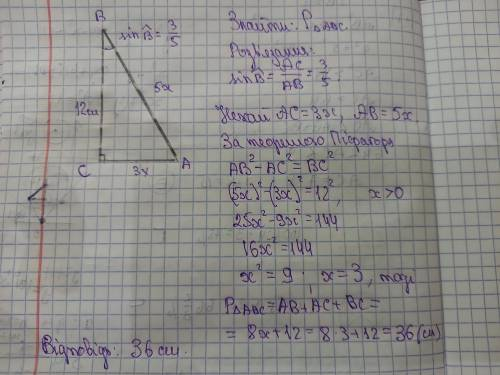 B
sin B̂ = 3/5
5x
12см
C
3x
A
Знайти: P△ABC.
Розв'язання:
sin B̂ = AC/AB = 3/5.
Нехай AC = 3x, AB = 5x
За теоремою Піфагора
AB² - AC² = BC²
(5x)² - (3x)² = 12², x > 0
25x² - 9x² = 144
16x² = 144
x² = 9; x = 3, тоді
P△ABC = AB + AC + BC =
= 8x + 12 = 8·3 + 12 = 36 (см)
Відповідь: 36 см.